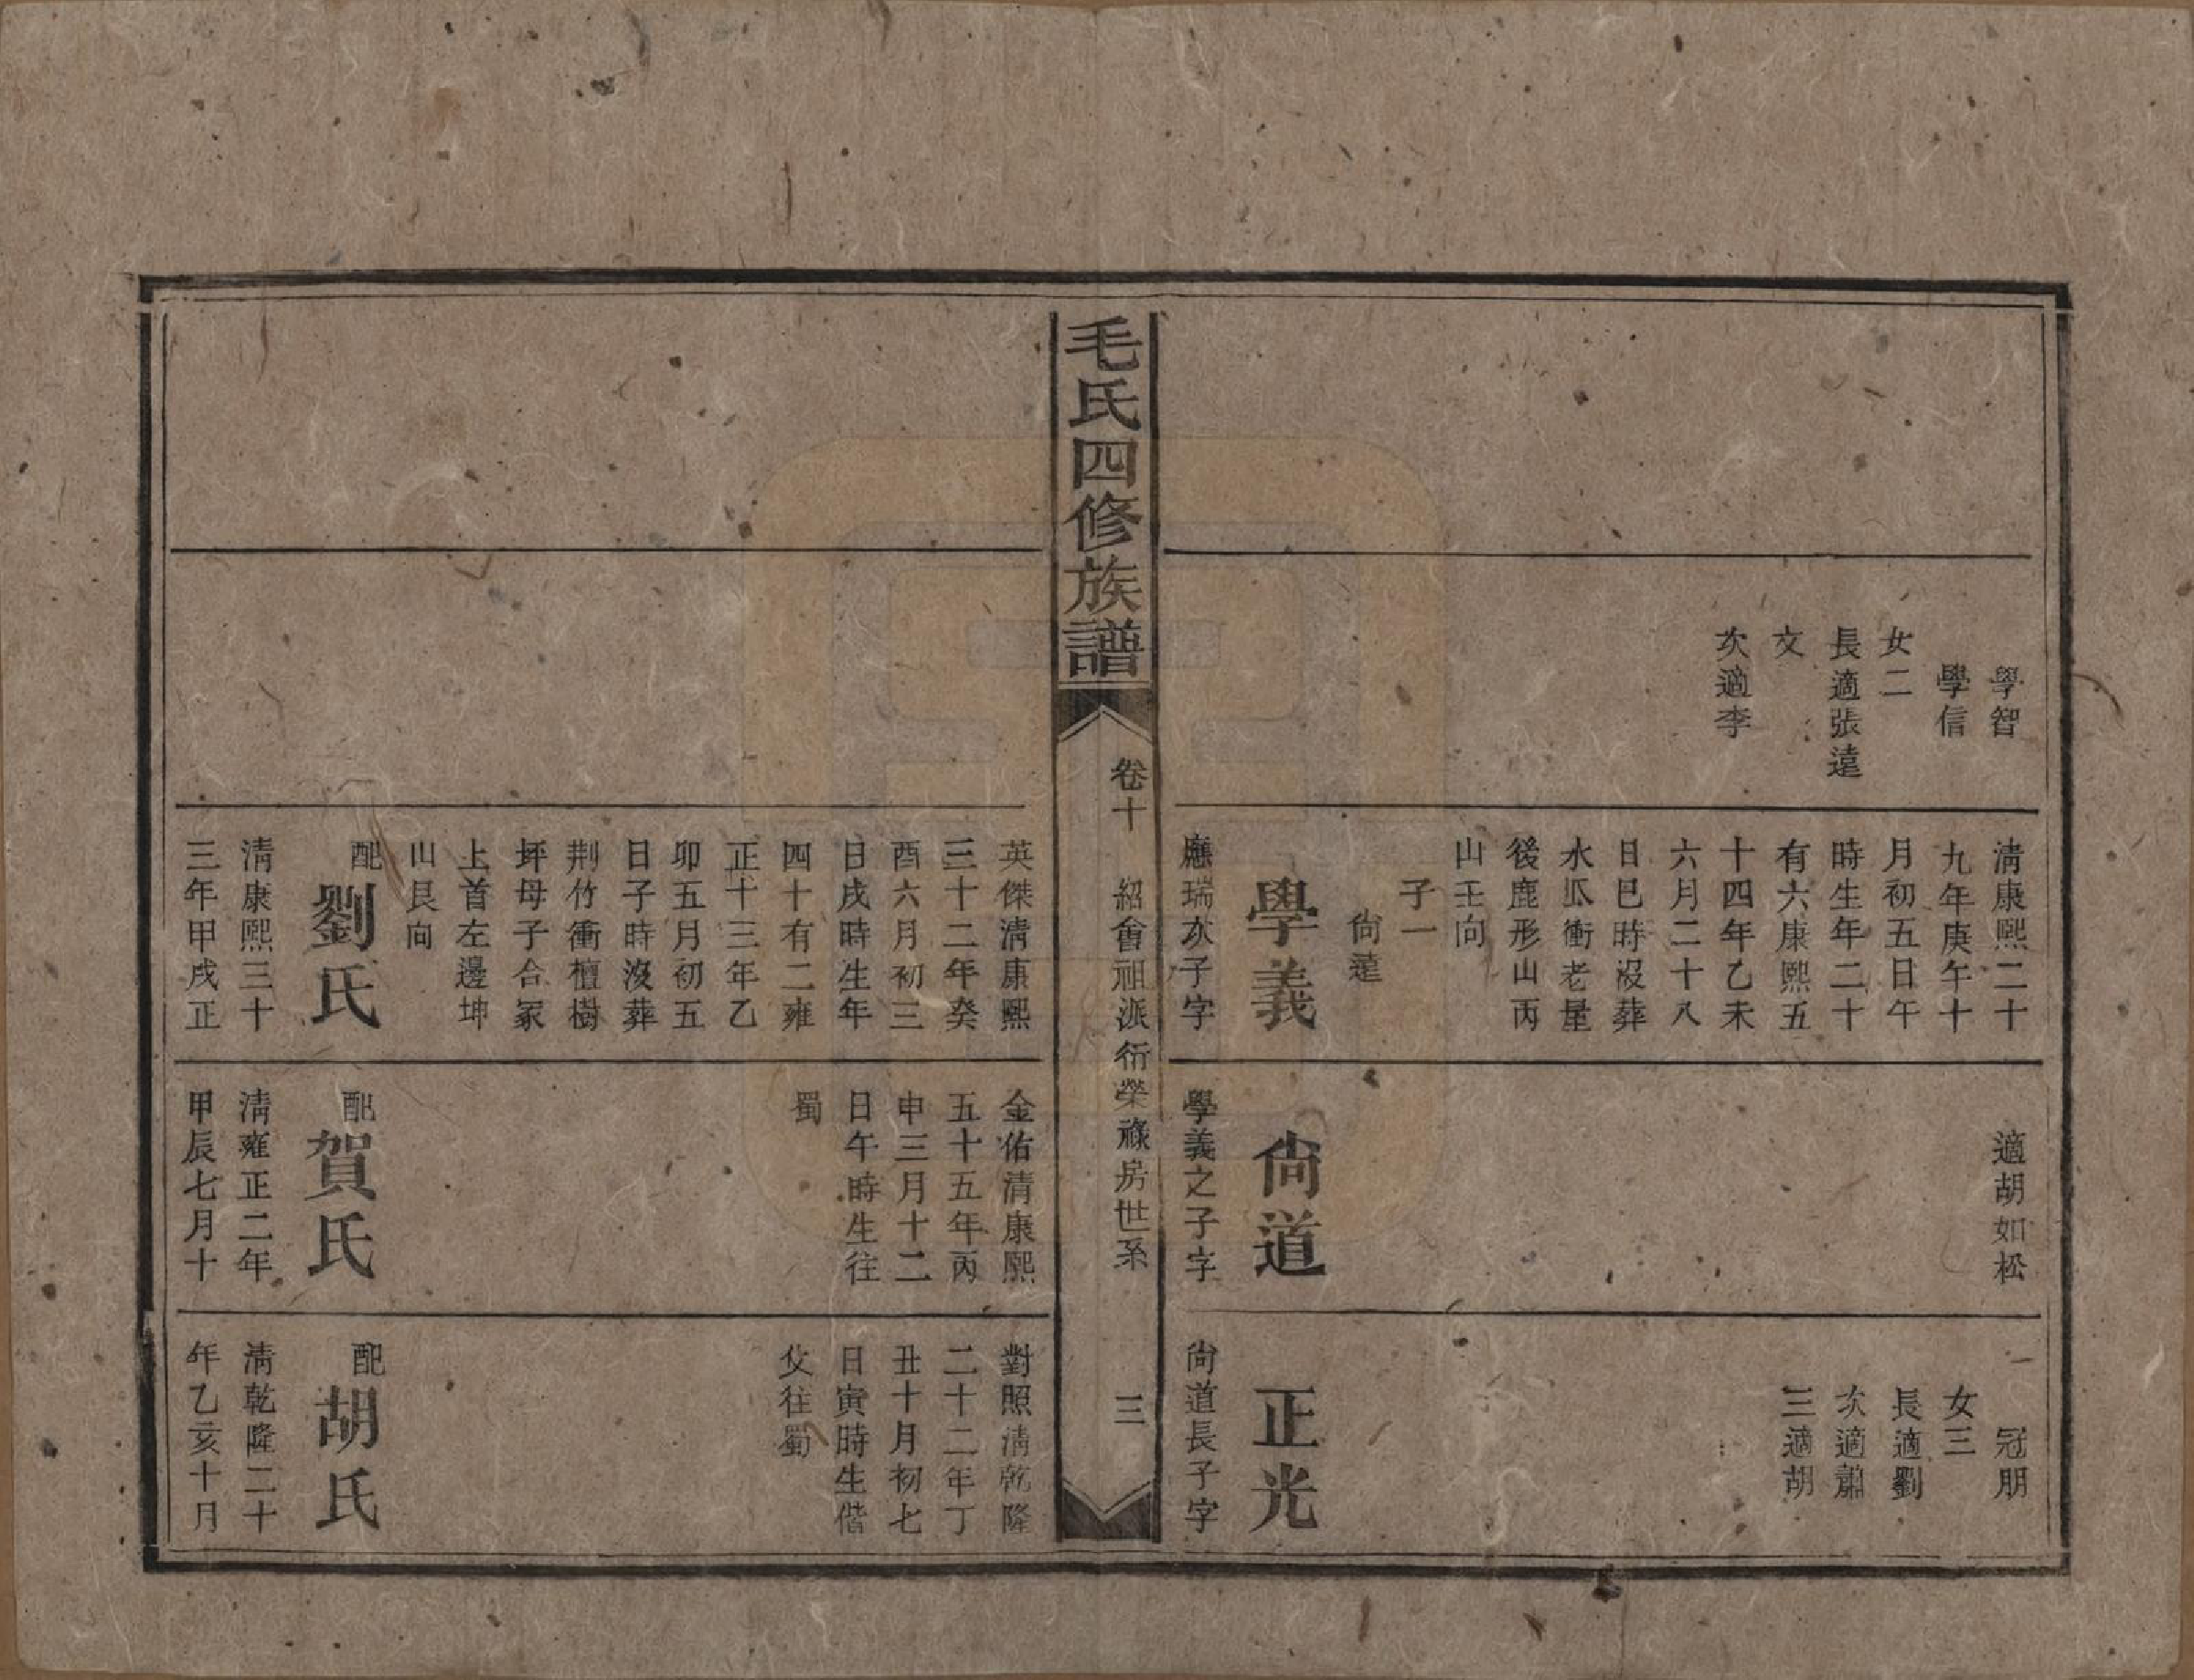 學智
學信
女二
長適張遠
文
次適李
清康熙二十
九年庚午十
月初五日午
時生年二十
有六康熙五
十四年乙未
六月二十八
日巳時沒葬
水瓜衝老屋
後鹿形山丙
山壬向
子一
尙道
學義
應瑞次子字
適胡如松
尙道
學義之子字
冠朋
女三
長適劉
次適蕭
三適胡
正光
尙道長子字
毛氏四修族譜
卷十
紹會祖派衍榮祿房世系
三
英傑清康熙
三十二年癸
酉六月初三
日戌時生年
四十有二雍
正十三年乙
卯五月初五
日子時沒葬
荆竹衝檀樹
坪母子合冢
上首左邊坤
山艮向
配劉氏
清康熙三十
三年甲戌正
金佑清康熙
五十五年丙
申三月十二
日午時生往
蜀
配賀氏
清雍正二年
甲辰七月十
對照清乾隆
二十二年丁
丑十月初七
日寅時生偕
父往蜀
配胡氏
清乾隆二十
年乙亥十月